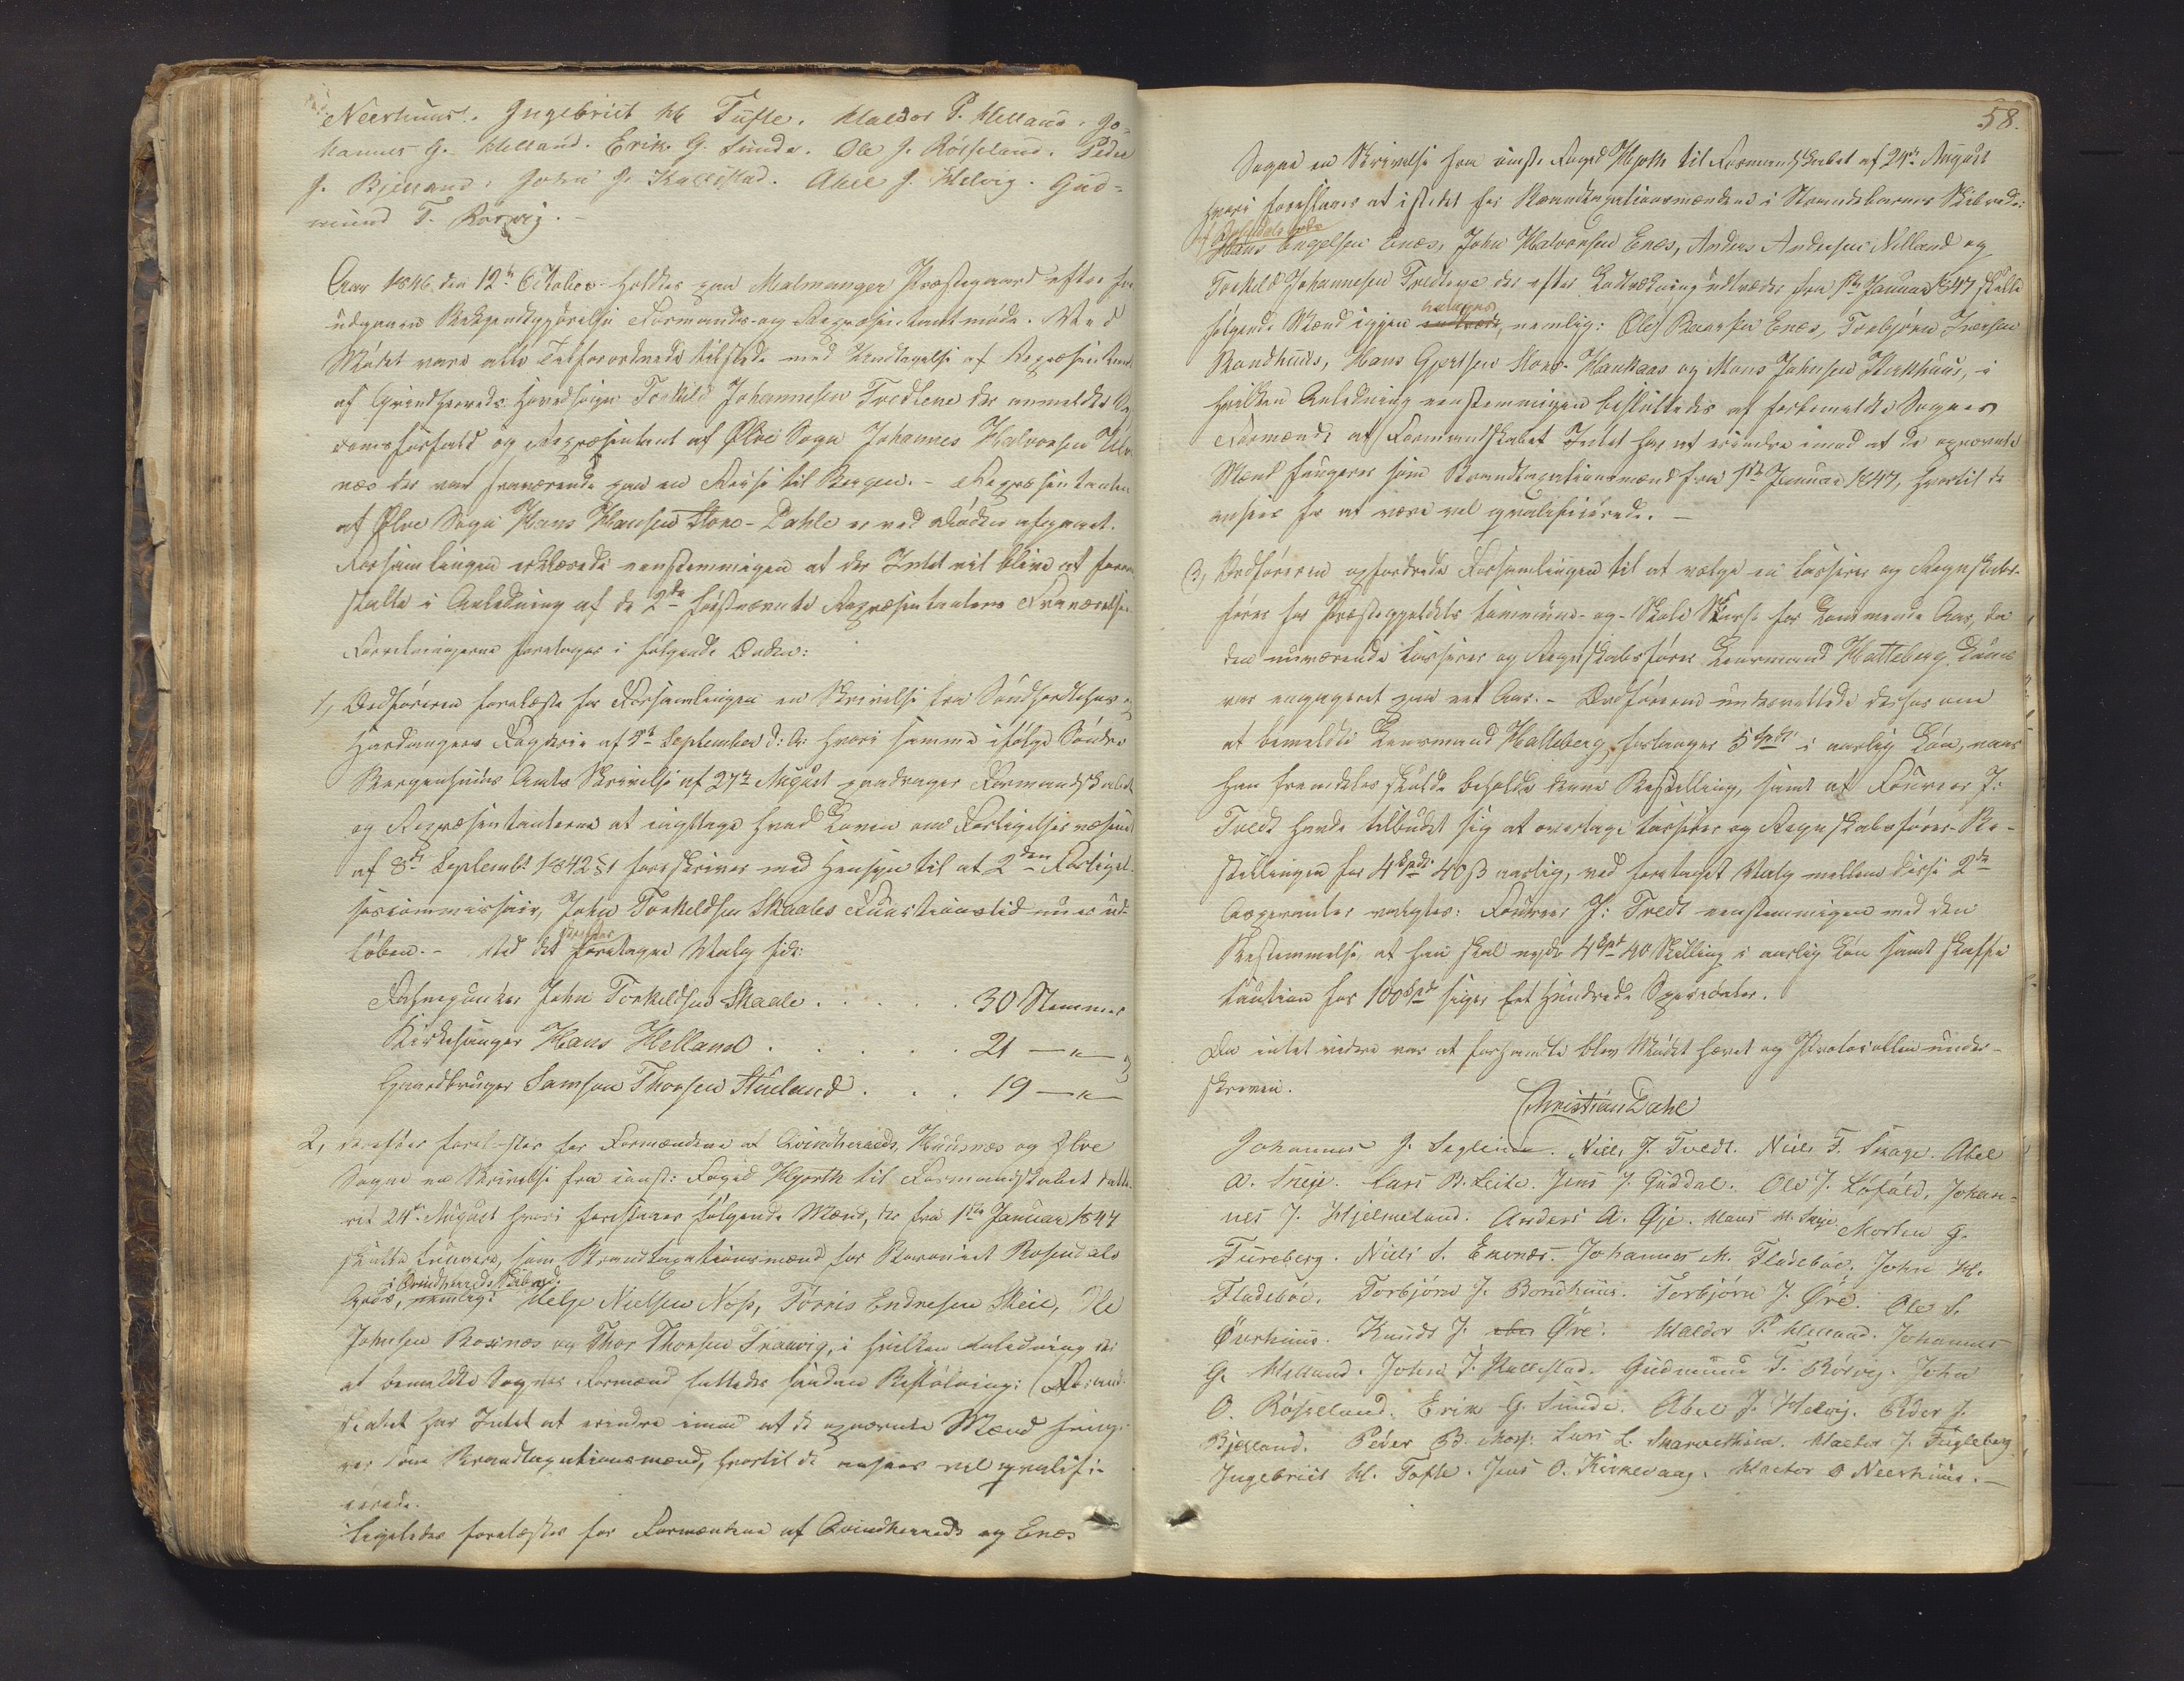 Neerhuus. Ingebrict H. Tufte. Haldor P. Helland. Jo-
hannes G. Helland. Erik G. Sunde. Ole J. Röisseland. Peder
J. Bjelland. John J. Hallestad. Abel J. Helvig. Gud-
mund T. Rörvig.
Aar 1846 den 12te October holdtes paa Malmanger Præstegaard efter for
udgaaen Bekjendtgjörelse Formands- og Repræsentantmöde. Ved
Mödet vare alle Tilforordnede tilstede med Undtagelse af Repræsentant
af Qvindherreds Hovedsogn Torkild Johannesen Tvedtene der anmeldte Syg
domsforfald og Repræsentant af Ølve Sogn Johannes Halvorsen Ulv
næs der var fraværende paa en Reise til Bergen. - Repræsentanten
af Ølve Sogn Hans Hansen Store-Dahle er ved Döden afgaaet.
Forsamlingen erklærede eenstemmigen at der Intet vil blive at fore
stille i Anledning af de 2de förstnævnte Repræsentanters Fraværelse.
Forretningerne foretoges i fölgende Orden:
1, Ordföreren forelæste for Forsamlingen en Skrivelse fra Söndhordlehns og
Hardangers Fogderie af 5te September d: A: hvori samme ifölge Söndre
Bergenhuus Amts Skrivelse af 27de August paadrager Formandskabet
og Repræsentanterne at iagttage hvad Loven om Forligelsesvæsenet
af 8de Septembr 1842 §1 foreskriver med Hensyn til at 2den Forligel-
sescommissair, John Torkildsen Skaales Functionstid nu er ud-
löben. - Ved det foretagne Valg fik:
Fahnejunker John Torkildsen Skaale . . . . . 30 Stemmer
Kirkesanger Hans Helland . . . . . . 21 — " —
Gaardbruger Samson Thorsen Huuland . . . 19 — " —
2, derefter forelæstes for Formændene af Qvindherreds, Huusnæs og Ølve
Sogne en Skrivelse fra const: Foged Hjorth til Formandskabet date-
ret 24de August hvori foreslaaes fölgende Mænd, der fra 1ste Januar 1847
skulle fungere som Brandtaxationsmænd for Baroniet Rosendals
i Qvindherreds Skibrede
Gods, nemlig: Helje Nielsen Næss, Törris Endresen Skeie, Ole
Johnsen Rosnæs og Thor Thorsen Traavig, i hvilken Anledning der
at bemeldte Sognes Formænd fattedes saadan Beslutning: (Formand-
skabet har Intet at erindre imod at de opnævnte Mænd funge-
rer som Brandtaxationsmænd, hvortil de ansees vel qvalifi-
cerede.
Ligeledes forelæstes for Formændene af Qvindherreds og Enæs
58.
Sogne en Skrivelse fra const: Foged Hjorth til Formandskabet af 24de August
hvori foreslaaes at istedet for Brandtaxationsmændene i Strandebarms Skibrede:
Hans Engelsen Enæs, John Halvorsen Enæs, Anders Andersen Nilland og
Torkild Johannesen Tvedtene der efter Lodtrækning udtræder fra 1ste Januar 1847 skulle
antages
fölgende Mænd igjen indtræde, nemlig: Ole Baarsen Enæs, Torbjörn Iversen
Bondhuus, Hans Gjertsen Store-Haukaas og Mons Johnsen Kirkhuus, i
hvilken Anledning eenstemmigen besluttedes af forbemeldte Sognes
Formænd at Formandskabet Intet har at erindre imod at de opnævnte
Mænd fungerer som Brandtaxationsmænd fra 1ste Januar 1847, hvortil de
ansees for at være vel qvalificerede. —
3, Ordföreren opfordrede Forsamlingen til at vælge en Casserer og Regnskabs-
förer for Præstegjeldets Commune- og Skole Kasse for kommende Aar, da
den nuværende Casserer og Regnskabsförer Leensmand Hatteberg kuns
var engageret paa eet Aar. - Ordföreren underrettede derhos om
at bemeldte Leensmand Hatteberg forlanger 5 Spd i aarlig Lön, naar
han fremdeles skulde beholde denne Bestilling, samt at Fourer J:
Tvedt havde tilbudet sig at overtage Casserer og Regnskabsförer-Be-
stillingen for 4 Spd 40 ß aarlig, ved foretaget Valg mellem disse 2de
Aspiranter valgtes: Fourer J: Tvedt eenstemmigen med den
Bestemmelse, at han skal nyde 4 Spd 40 Skilling i aarlig Lön samt skaffe
Caution for 100 Spd siger Eet Hundrede Speciedaler.
Da intet videre var at forhandle blev Mödet hævet og Protocollen under-
skreven.
Christian Dahl
Johannes J. Seglem. Niels J. Tvedt. Niels T. Skage. Abel
A. Sneje. Lars B. Leite. Jens J. Guddal. Ole J. Löfald. Johan-
nes J. Hjelmeland. Anders A. Øje. Hans H. Sneje. Morten G.
Tureberg. Niels S. Enernæs. Johannes M. Fladeböe. John H.
Fladeböe. Torbjörn J. Bondhuus. Torbjörn J. Øre. Ole S.
Överhuus. Knudt J. Øre. Haldor P. Helland. Johannes
G. Helland. John J. Hallestad. Gudmund T. Rörvig. John
O. Röisseland. Erik G. Sunde. Abel J. Helvig. Peder J.
Bjelland. Peder B. Moss. Lars L. Skarvethun. Haldor J. Fugleberg.
Ingebrict H. Tofte. Jens O. Kirkevaag. Haldor O Neerhuus. —